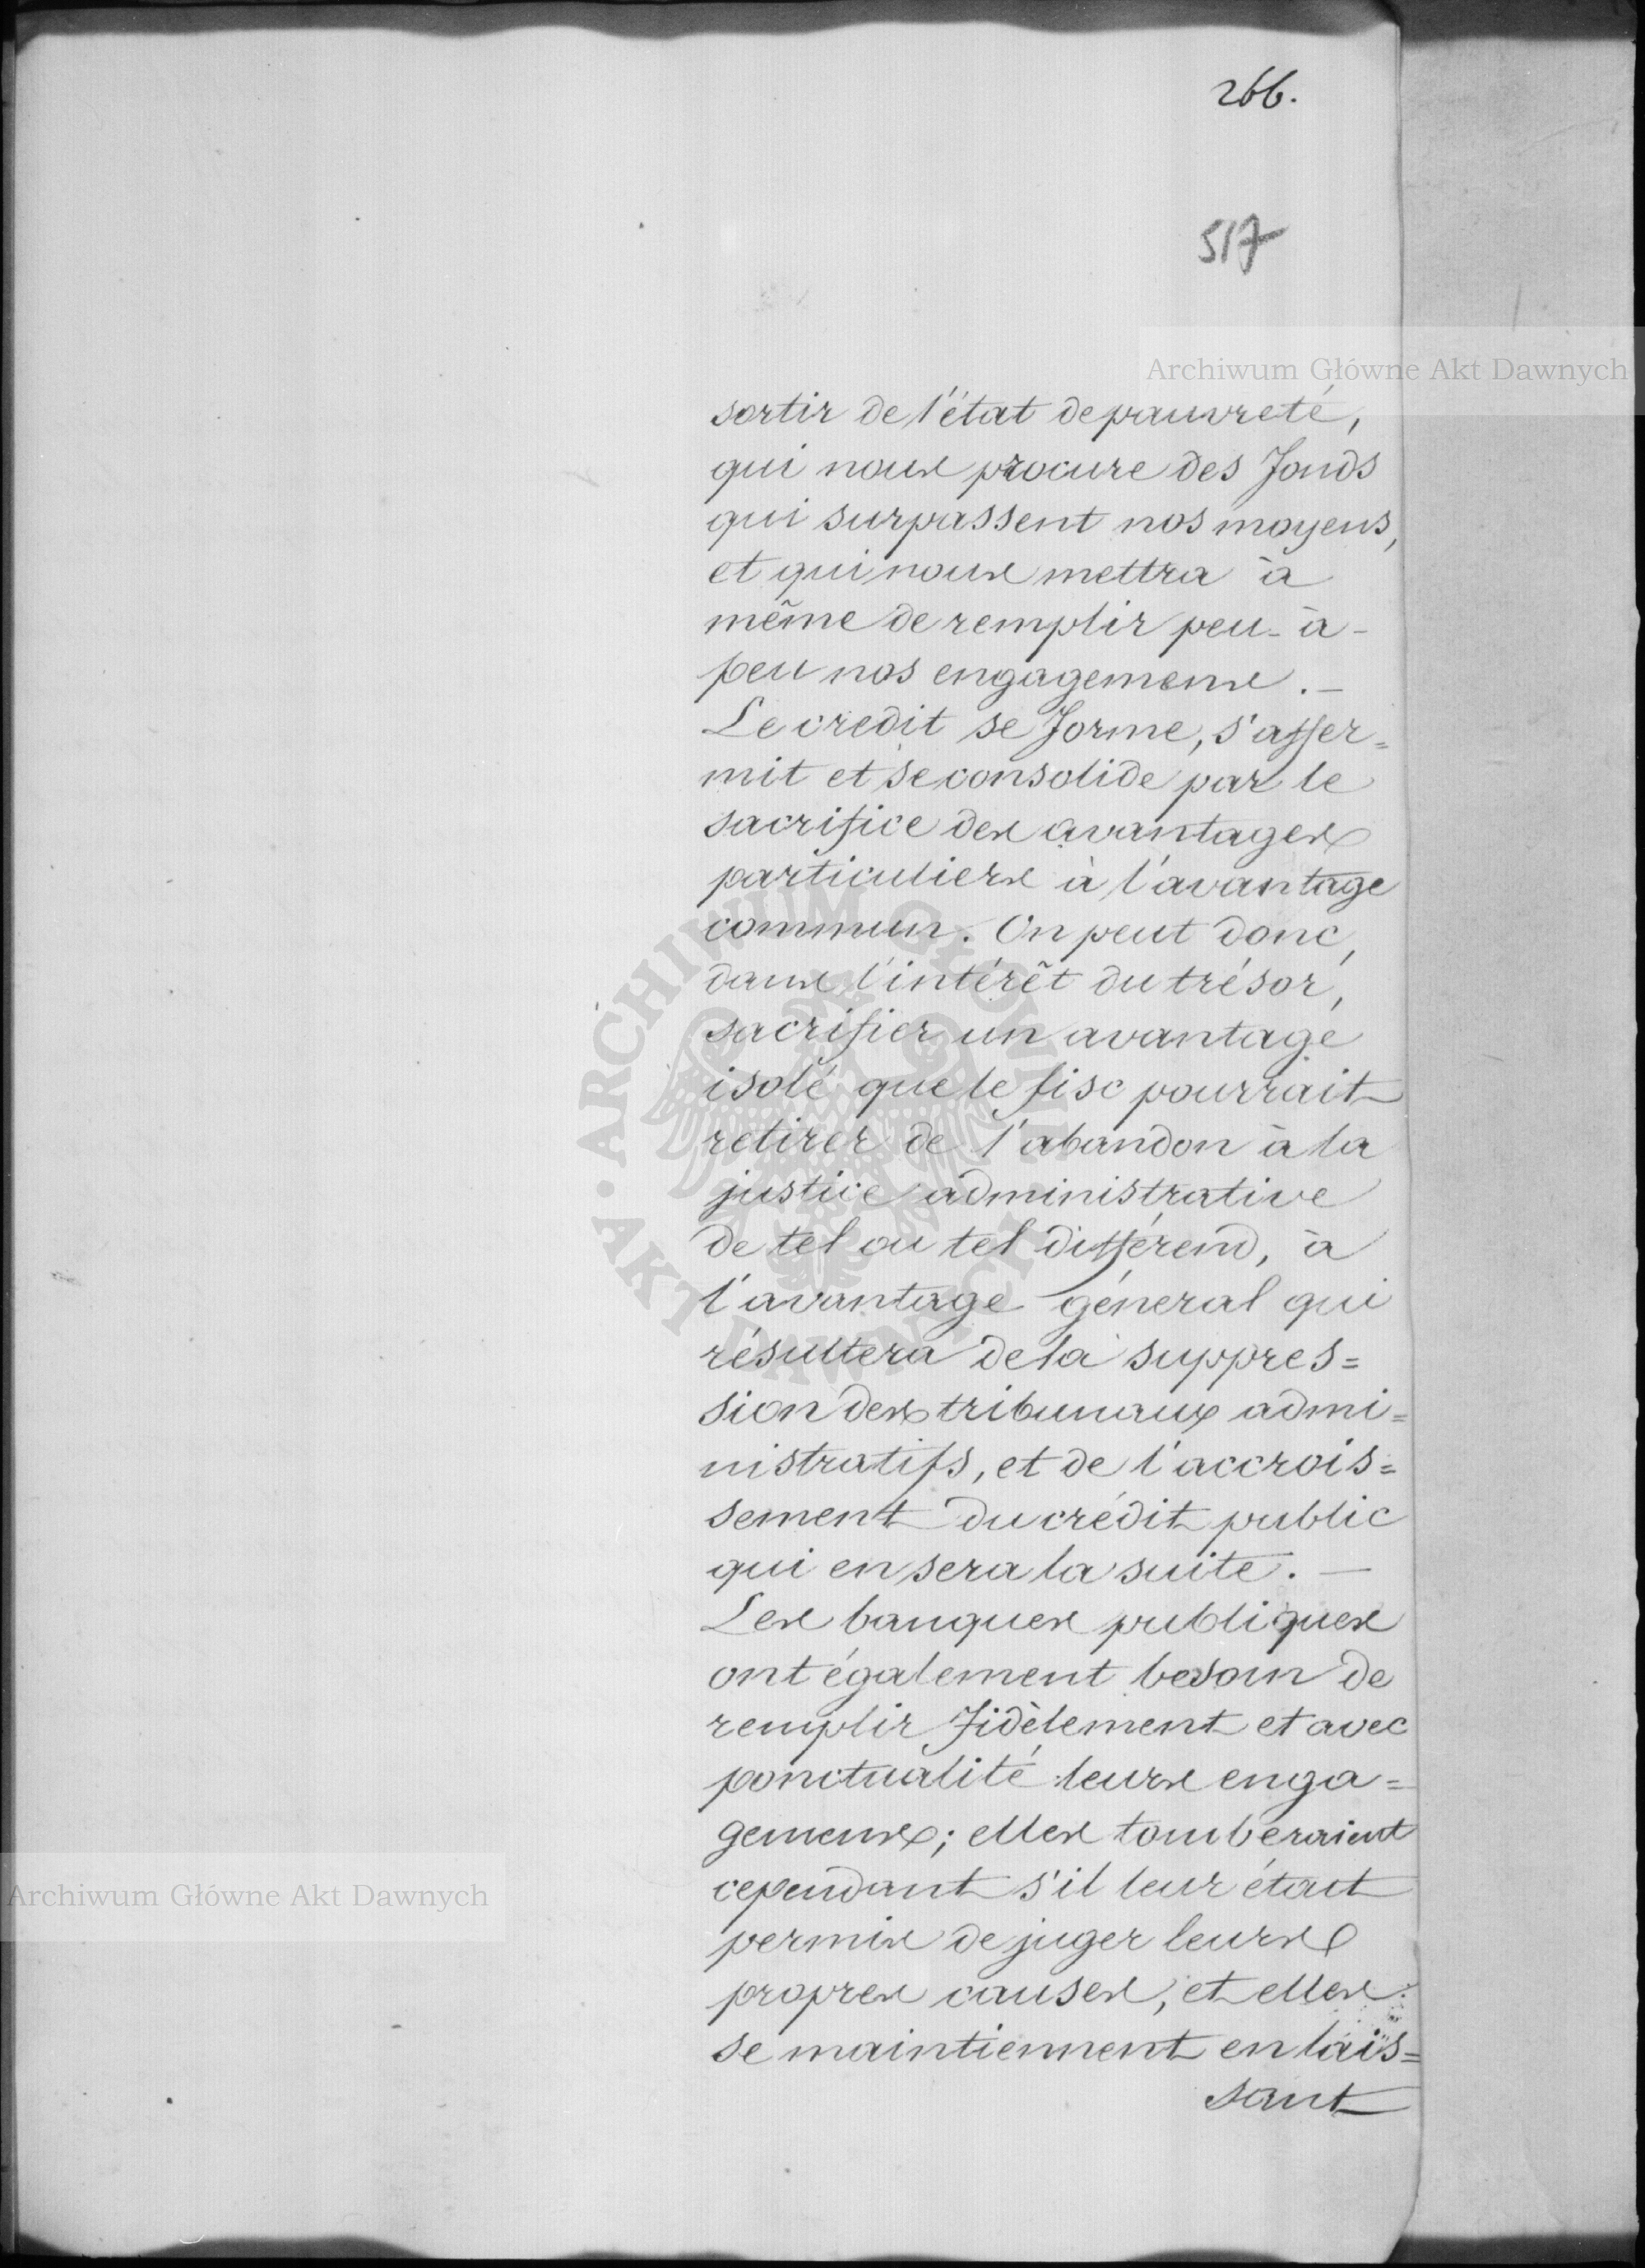 266.
517
Archiwum Główne Akt Dawnych
sortir de l'état de pauvreté,
qui nous procure des fonds
qui surpassent nos moyens,
et qui nous mettra à
même de remplir peu-à-
peu nos engagemens. —
Le credit se forme, s'affer=
mit et se consolide par le
sacrifice des avantages
particuliers à l'avantage
commun. On peut donc,
dans l'intérêt du trésor,
sacrifier un avantage
isolé que le fisc pourrait
retirer de l'abandon à la
justice administrative
de tel ou tel différend, à
l'avantage géneral qui
résultera de la suppres=
sion des tribunaux admi=
nistratifs, et de l'accrois=
sement du crédit public
qui en sera la suite. —
Les banques publiques
ont également besoin de
remplir fidèlement et avec
ponctualité leurs enga=
gemens; elles tomberaient
cependant s'il leur était
permis de juger leurs
propres causes, et elles
se maintiennent en lais=
sant
Archiwum Główne Akt Dawnych
ARCHIWUM GŁÓWNE AKT DAWNYCH